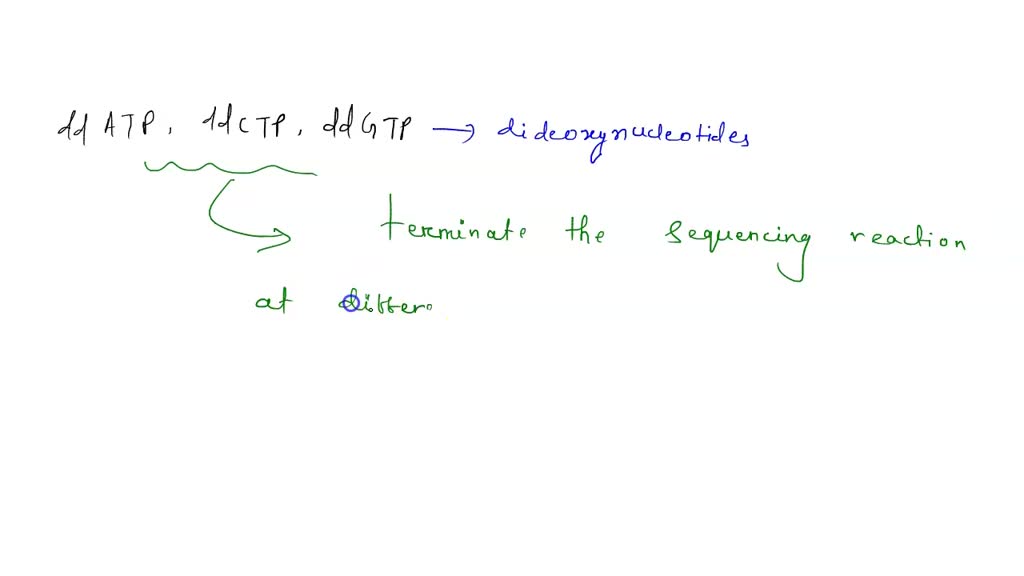 ddATP, ddCTP, ddGTP → dideoxynucleotides
terminate the sequencing reaction
at differ